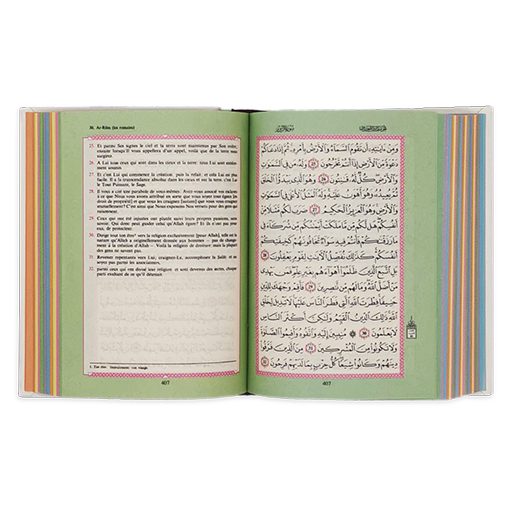 30. Ar-Rûm (les romains)
25. Et parmi Ses signes le ciel et la terre sont maintenus par Son ordre;
ensuite lorsqu'Il vous appellera d'un appel, voilà que de la terre vous
surgirez.
26. A Lui tous ceux qui sont dans les cieux et la terre: tous Lui sont entièrement
soumis.
27. Et c'est Lui qui commence la création, puis la refait; et cela Lui est plus
facile. Il a la transcendance absolue dans les cieux et sur la terre. C'est Lui
le Tout Puissant, le Sage.
28. Il vous a cité une parabole de vous-mêmes: Avez-vous associé vos esclaves
à ce que Nous vous avons attribué en sorte que vous soyez tous égaux [en
droit de propriété] et que vous les craignez [autant] que vous vous craignez
mutuellement? C'est ainsi que Nous exposons Nos versets pour des gens qui
raisonnent.
29. Ceux qui ont été injustes ont plutôt suivi leurs propres passions, sans
savoir. Qui donc peut guider celui qu'Allah égare? Et ils n'ont pas
de protecteur.
30. Dirige tout ton être vers la religion exclusivement [pour Allah], telle est la
nature qu'Allah a originellement donnée aux hommes — pas de changement
à la création d'Allah —. Voilà la religion de droiture; mais la plupart
des gens ne savent pas.
31. Revenez repentants vers Lui; craignez-Le, accomplissez la Salât et ne
soyez pas parmi les associateurs,
32. parmi ceux qui ont divisé leur religion et sont devenus des sectes, chaque
parti exultant de ce qu'il détenait.
407
وَمِنْ ءَايَٰتِهِۦٓ أَن تَقُومَ ٱلسَّمَآءُ وَٱلْأَرْضُ بِأَمْرِهِۦ ثُمَّ إِذَا دَعَاكُمْ
دَعْوَةً مِّنَ ٱلْأَرْضِ إِذَآ أَنتُمْ تَخْرُجُونَ ٢٥ وَلَهُۥ مَن فِى ٱلسَّمَٰوَٰتِ
وَٱلْأَرْضِ كُلٌّ لَّهُۥ قَٰنِتُونَ ٢٦ وَهُوَ ٱلَّذِى يَبْدَؤُا۟ ٱلْخَلْقَ
ثُمَّ يُعِيدُهُۥ وَهُوَ أَهْوَنُ عَلَيْهِ وَلَهُ ٱلْمَثَلُ ٱلْأَعْلَىٰ فِى ٱلسَّمَٰوَٰتِ
وَٱلْأَرْضِ وَهُوَ ٱلْعَزِيزُ ٱلْحَكِيمُ ٢٧ ضَرَبَ لَكُم مَّثَلًا مِّنْ
أَنفُسِكُمْ هَل لَّكُم مِّن مَّا مَلَكَتْ أَيْمَٰنُكُم مِّن شُرَكَآءَ فِى
مَا رَزَقْنَٰكُمْ فَأَنتُمْ فِيهِ سَوَآءٌ تَخَافُونَهُمْ كَخِيفَتِكُمْ
أَنفُسَكُمْ كَذَٰلِكَ نُفَصِّلُ ٱلْءَايَٰتِ لِقَوْمٍ يَعْقِلُونَ ٢٨
بَلِ ٱتَّبَعَ ٱلَّذِينَ ظَلَمُوٓا۟ أَهْوَآءَهُم بِغَيْرِ عِلْمٍ فَمَن يَهْدِى
مَنْ أَضَلَّ ٱللَّهُ وَمَا لَهُم مِّن نَّٰصِرِينَ ٢٩ فَأَقِمْ وَجْهَكَ لِلدِّينِ
حَنِيفًا فِطْرَتَ ٱللَّهِ ٱلَّتِى فَطَرَ ٱلنَّاسَ عَلَيْهَا لَا تَبْدِيلَ لِخَلْقِ
ٱللَّهِ ذَٰلِكَ ٱلدِّينُ ٱلْقَيِّمُ وَلَٰكِنَّ أَكْثَرَ ٱلنَّاسِ
لَا يَعْلَمُونَ ٣٠ مُنِيبِينَ إِلَيْهِ وَٱتَّقُوهُ وَأَقِيمُوا۟ ٱلصَّلَوٰةَ
وَلَا تَكُونُوا۟ مِنَ ٱلْمُشْرِكِينَ ٣١ مِنَ ٱلَّذِينَ فَرَّقُوا۟
دِينَهُمْ وَكَانُوا۟ شِيَعًا كُلُّ حِزْبٍۭ بِمَا لَدَيْهِمْ فَرِحُونَ ٣٢
407